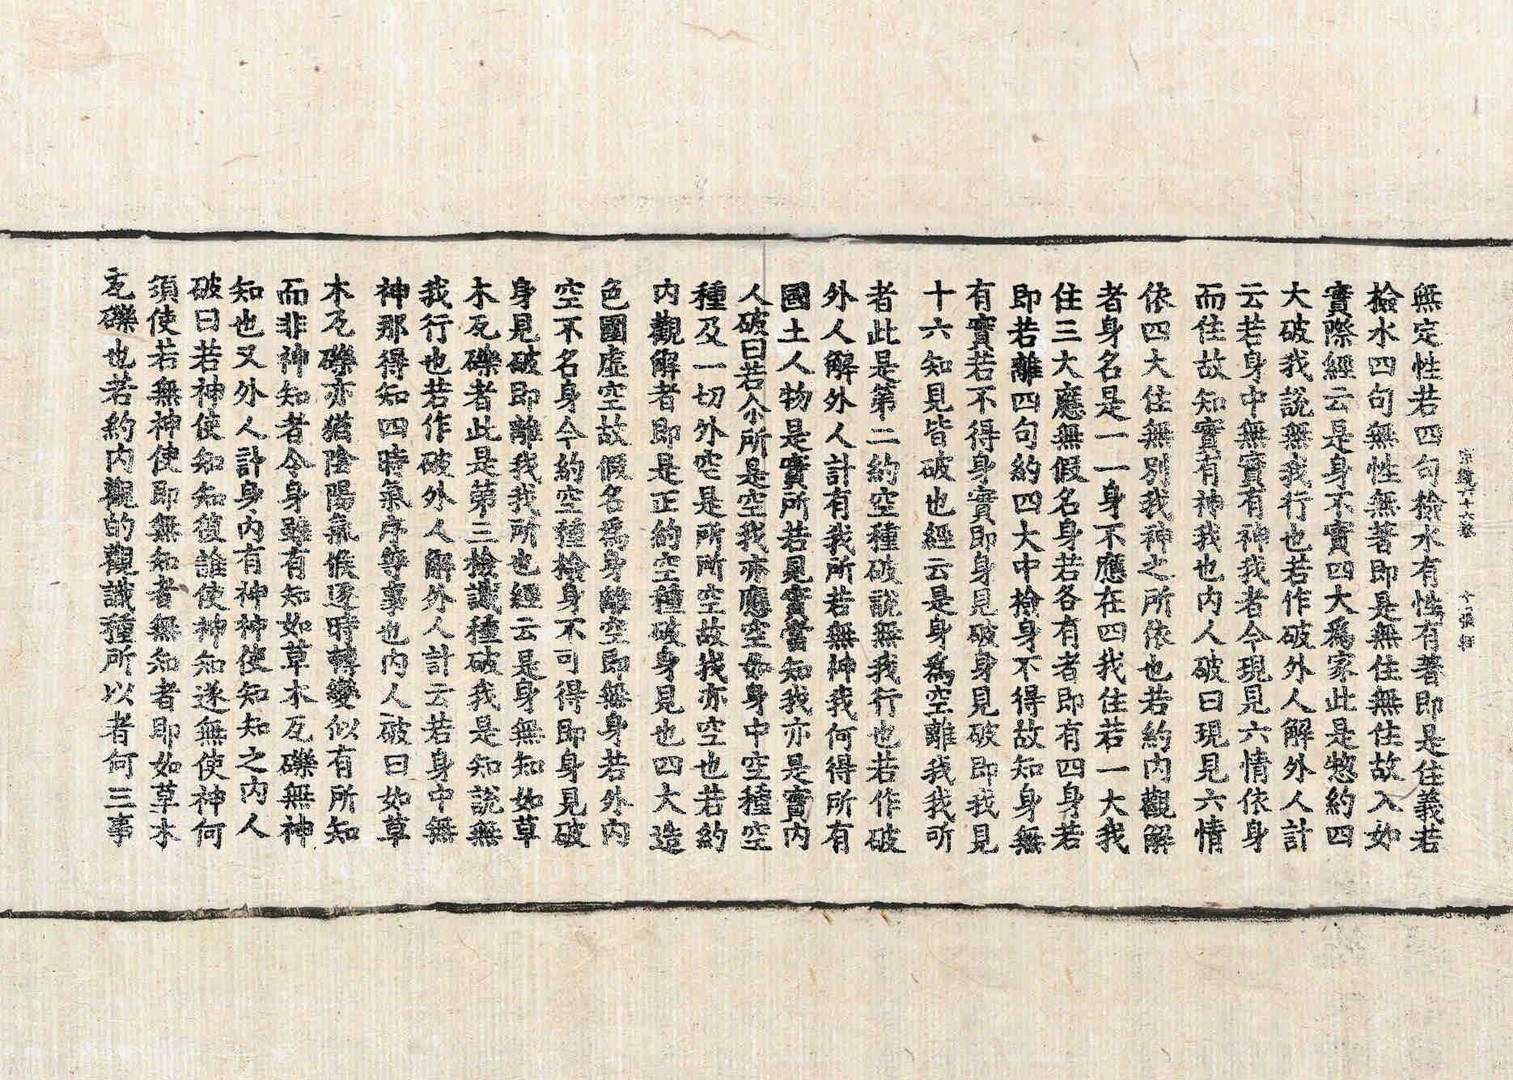 宗鏡六十六卷 十張 軽
無定性若四句撿水有性有著即是住義若
撿水四句無性無著即是無住無住故入如
實際經云是身不實四大爲家此是揔約四
大破我說無我行也若作破外人解外人計
云若身中無實有神我者今現見六情依身
而住故知實有神我也内人破曰現見六情
依四大住無別我神之所依也若約内觀解
者身名是一一身不應在四我住若一大我
住三大應無假名身若各有者即有四身若
即若離四句約四大中撿身不得故知身無
有實若不得身實即身見破身見破即我見
十六知見皆破也經云是身爲空離我我所
者此是第二約空種破說無我行也若作破
外人解外人計有我所若無神我何得所有
國土人物是實所若見實當知我亦是實内
人破曰若尒所是空我亦應空如身中空種空
種及一切外空是所所空故我亦空也若約
内觀解者即是正約空種破身見也四大造
色國虛空故假名爲身離空即無身若外内
空不名身今約空種撿身不可得即身見破
身見破即離我我所也經云是身無知如草
木瓦礫者此是第三撿識種破我是知說無
我行也若作破外人解外人計云若身中無
神那得知四時氣序等事也内人破曰如草
木瓦礫亦猶陰陽氣候逐時轉變似有所知
而非神知者今身雖有知如草木瓦礫無神
知也又外人計身内有神神使知知之内人
破曰若神使知知彼誰使神知遂無使神何
須使若無神使即無知者無知者即如草木
瓦礫也若約内觀的觀識種所以者何三事